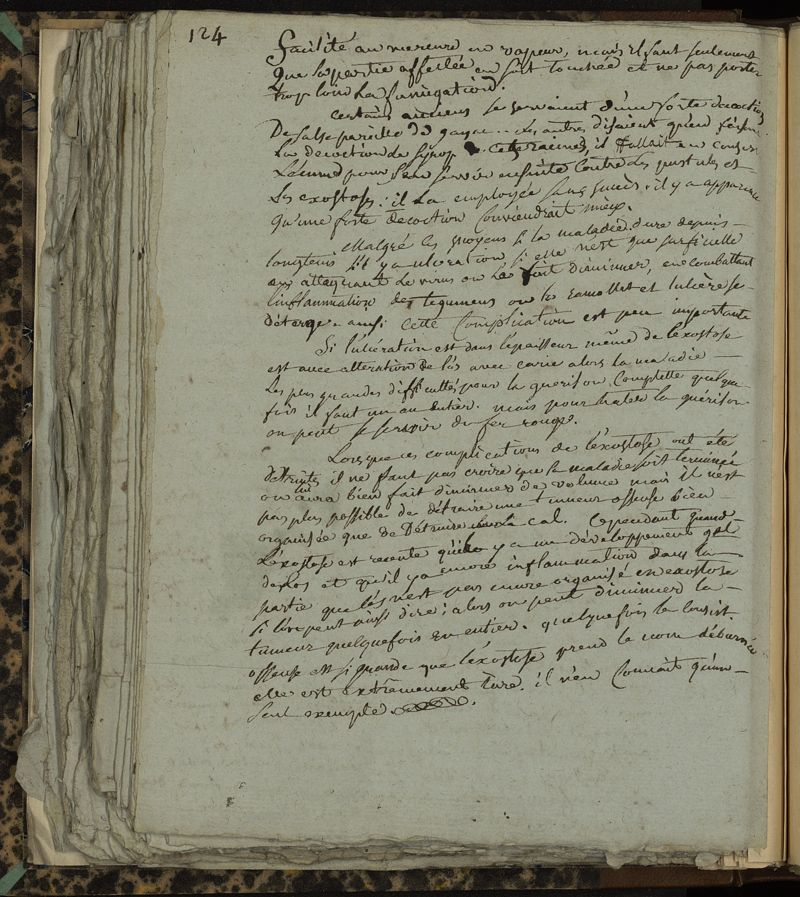 124
facilité au mercure en vapeur, mais il faut seulement
que la partie affectée en soit touchée et ne pas porter
trop loin la fumigation.
certains anciens se servaient d'une forte decoction
De salse pareille de gayac .. les autres disaient qu'en fesant
La decoction de sirop ces racines, il fallait en conser
L'écume pour s'en servir ensuite contre les pustules et
Les exostoses: il la employée sans succès. il y a apparence
qu'une forte decoction conviendrait mieux.
Malgré ces moyens si la maladie dure depuis
longtems s'il y a ulceration, si elle n'est que surficielle
en attaquant le virus on la fait diminuer, en combattant
l'inflammation des tegumens on les ramollit et l'ulcère se
déterge. ainsi cette complication est peu importante
Si l'ulcération est dans l'epaisseur même de l'exostose
est avec alteration de l'os avec carie alors la maladie
Les plus grandes difficultés pour la guerison complette quelque
fois il faut un an entier. mais pour hater la guérison
on peut se servir du fer rouge.
Lorsque ces complications de l'exostose ont été
detruites il ne faut pas croire que la maladie soit terminée
on aura bien fait diminuer de volume mais il n'est
pas plus possible de détruire une tumeur osseuse bien
organisée que de détruire le cal. Cependant quand
L'exostose est recente qu'il y a un développement
de l'os et qu'il y a encore inflammation dans la
partie que l'os n'est pas encore organisé en exostose
si l'on peut ainsi dire; alors on peut diminuer la
tumeur quelquefois en entier. quelquefois la consist.
osseuse est si grande que l'exostose prend le nom d'éburnée
elle est extrêmement dure. il n'en connait qu'un
seul exemple.